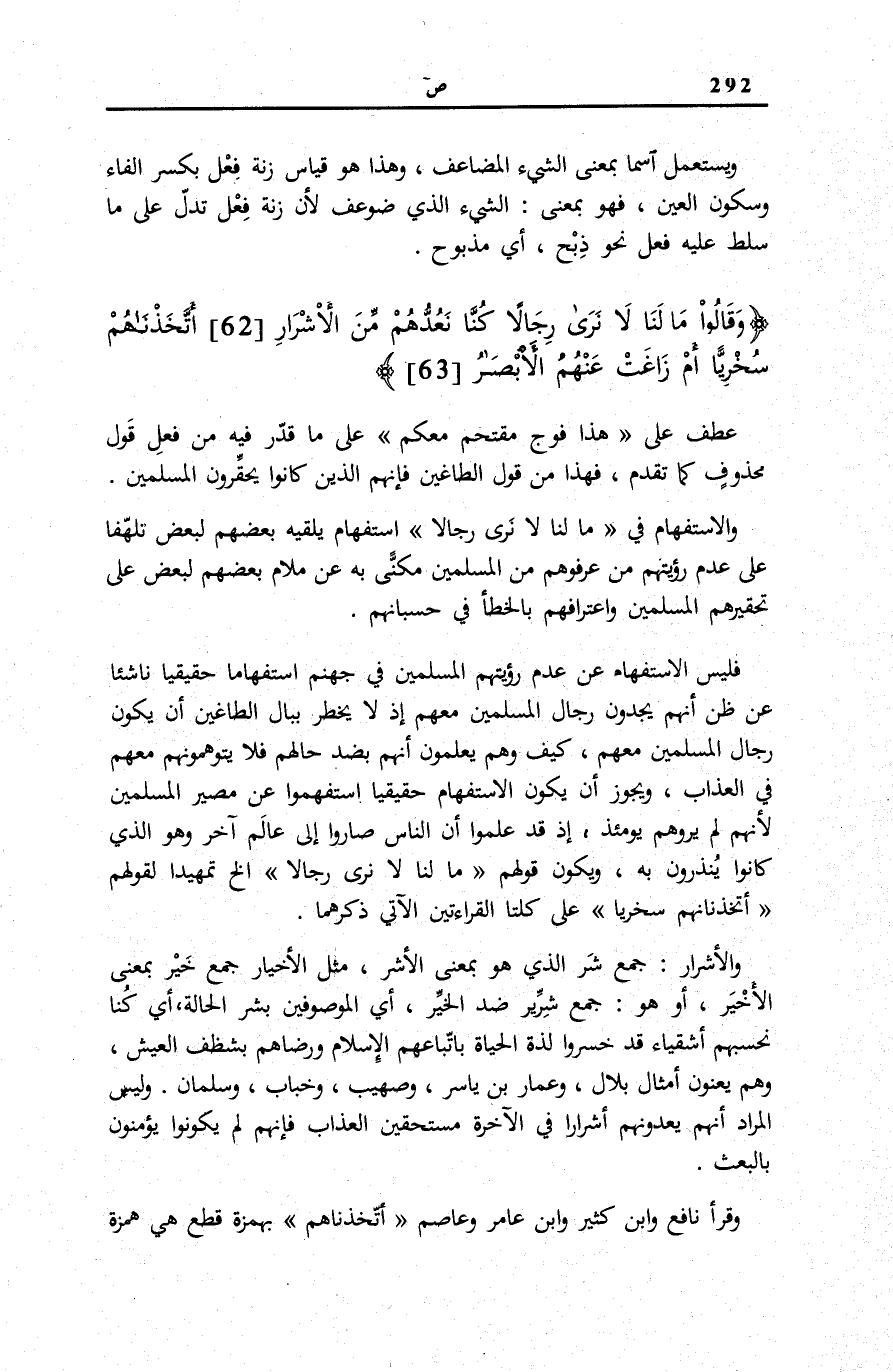 292 صۤ
ويستعمل ٱسما بمعنى الشيء المضاعف ، وهذا هو قياس زنة فِعْل بكسر الفاء
وسكون العين ، فهو بمعنى : الشيء الذي ضوعف لأن زنة فِعْل تدلّ على ما
سلط عليه فعل نحو ذِبْح ، أي مذبوح .
﴿وَقَالُواْ مَا لَنَا لَا نَرَىٰ رِجَالًا كُنَّا نَعُدُّهُمْ مِّنَ الْأَشْرَارِ [62] أَتَّخَذْنَـٰهُمْ
سُخْرِيًّا أَمْ زَاغَتْ عَنْهُمُ الْأَبْصَـٰرُ [63] ﴾
عطف على « هذا فوج مقتحم معكم » على ما قدّر فيه من فعلِ قَول
محذوفٍ كما تقدم ، فهذا من قول الطاغين فإنهم الذين كانوا يحقِّرون المسلمين .
والاستفهام في « ما لنا لا نَرى رجالا » استفهام يلقيه بعضهم لبعض تلهّفا
على عدم رؤيتهم من عرفوهم من المسلمين مكنًّى به عن ملام بعضهم لبعض على
تحقيرهم المسلمين واعترافهم بالخطأ في حسبانهم .
فليس الاستفهام عن عدم رؤيتهم المسلمين في جهنم استفهاما حقيقيا ناشئا
عن ظن أنهم يجدون رجال المسلمين معهم إذ لا يخطر ببال الطاغين أن يكون
رجال المسلمين معهم ، كيف وهم يعلمون أنهم بضد حالهم فلا يتوهمونهم معهم
في العذاب ، ويجوز أن يكون الاستفهام حقيقيا استفهموا عن مصير المسلمين
لأنهم لم يروهم يومئذ ، إذ قد علموا أن الناس صاروا إلى عالَم آخر وهو الذي
كانوا يُنذرون به ، ويكون قولهم « ما لنا لا نرى رجالا » الخ تمهيدا لقولهم
« أتخذنانهم سخريا » على كلتا القراءتين الآتي ذكرهما .
والأشرار : جمع شَر الذي هو بمعنى الأشر ، مثل الأخيار جمع خَيْر بمعنى
الأَخْيَر ، أو هو : جمع شِرِّير ضد الخَيِّر ، أي الموصوفين بشر الحالة،أي كُنا
نحسبهم أشقياء قد خسروا لذة الحياة باتّباعهم الإسلام ورضاهم بشظف العيش ،
وهم يعنون أمثال بلال ، وعمار بن ياسر ، وصهيب ، وخباب ، وسلمان . وليس
المراد أنهم يعدونهم أشرارا في الآخرة مستحقين العذاب فإنهم لم يكونوا يؤمنون
بالبعث .
وقرأ نافع وابن كثير وابن عامر وعاصم « أتّخذناهم » بهمزة قطع هي همزة